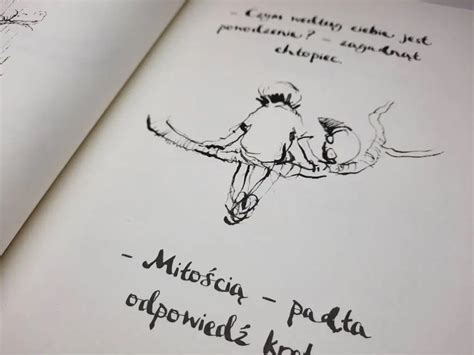 - Czym według ciebie jest
powodzenie? - zagadnął
chłopiec.
- Miłością - padła
odpowiedź kret